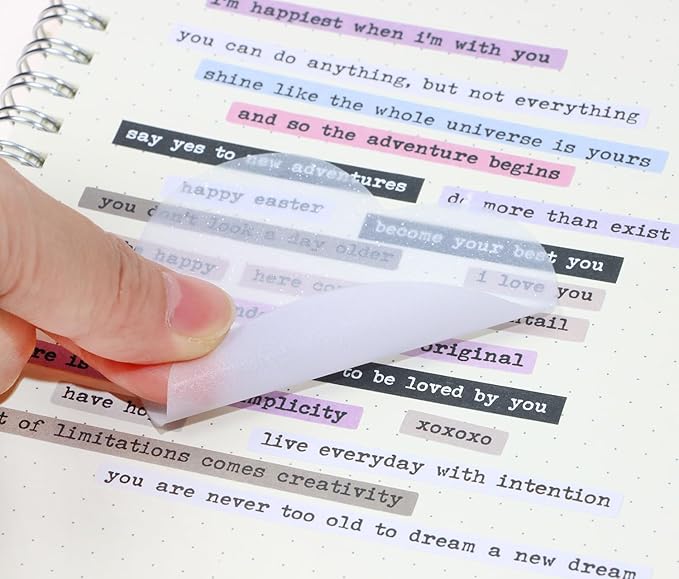 I'm happiest when i'm with you
you can do anything, but not everything
shine like the whole universe is yours
and so the adventure begins
say yes to new adventures
happy easter
do more than exist
you don't look a day older
become your best you
be happy
here co
i love you
tail
original
re is
to be loved by you
have ho
mplicity
xoxoxo
t of limitations comes creativity
live everyday with intention
you are never too old to dream a new dream